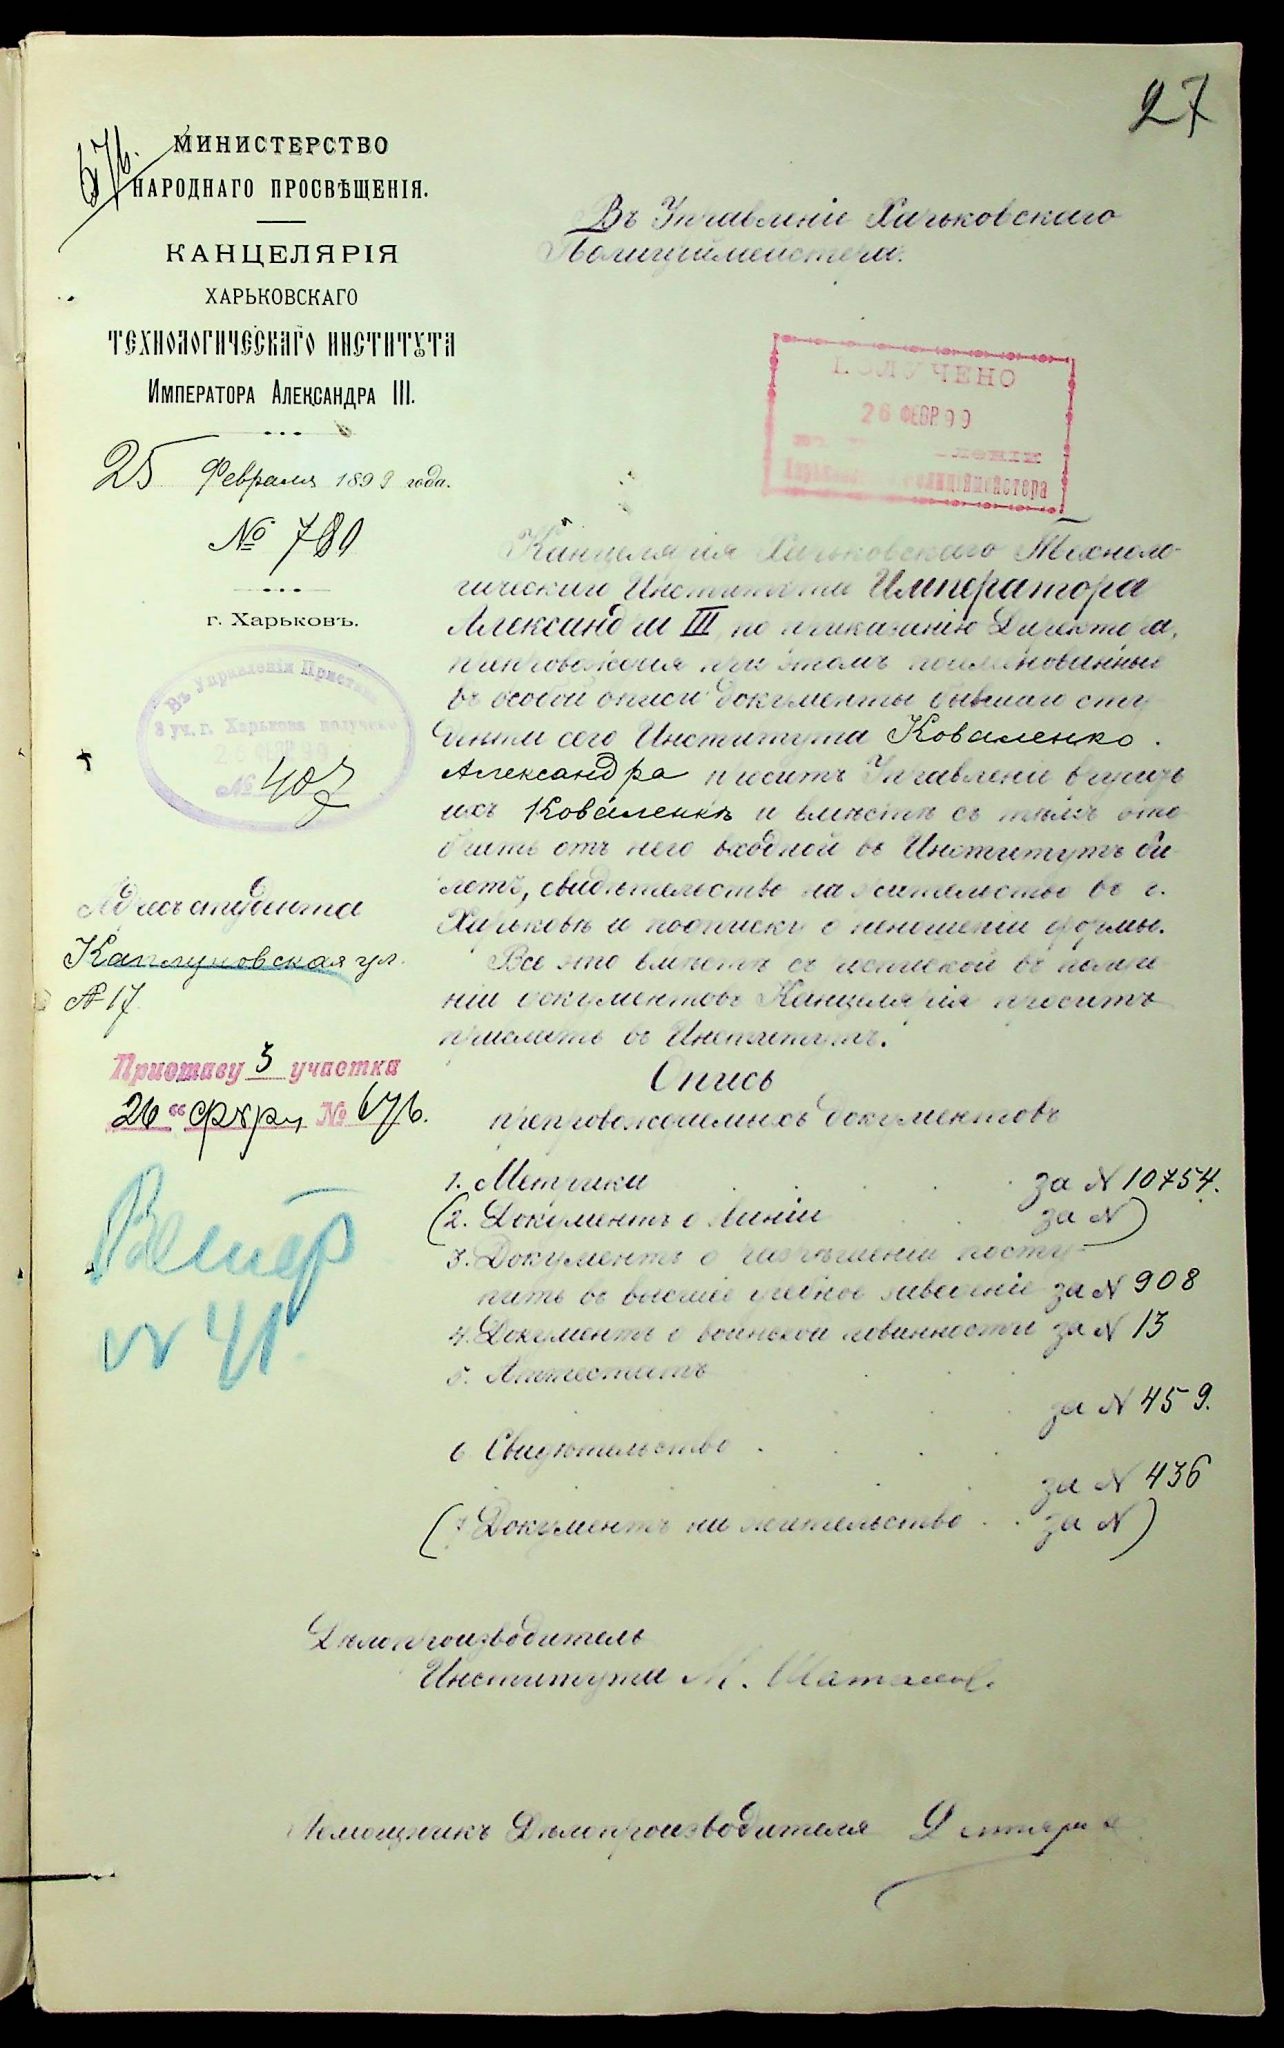 27
676.
МИНИСТЕРСТВО
НАРОДНАГО ПРОСВѢЩЕНІЯ.
КАНЦЕЛЯРІЯ
ХАРЬКОВСКАГО
ТЕХНОЛОГИЧЕСКАГО ИНСТИТУТА
Императора Александра III.
25 Февраля 1899 года.
№ 780
г. Харьковъ.
Въ Управленіи Пристава
3 уч. г. Харькова получено
№ 407
Адресъ студента
Каплуновская ул.
№ 17
Приставу 3 участка
26 " фвр, № 676.
№ 41.
Въ Управленіе Харьковскаго
Полиціймейстера.
ПОЛУЧЕНО
26 ФЕВР 99
Полиціймейстера
Канцелярія Харьковскаго Техноло-
гическаго Института Императора
Александра III, по приказанію Директора,
препровождая при этомъ поименованные
въ особой описи документы бывшаго сту-
дента сего Института Коваленко
Александра проситъ Управленіе выдать
ихъ Коваленкѣ и вмѣстѣ съ тѣмъ ото-
брать отъ него входной въ Институтъ би-
летъ, свидѣтельство на жительство въ г.
Харьковѣ и подписку о неношеніи формы.
Все это вмѣстѣ съ роспиской въ получе-
ніи документовъ Канцелярія проситъ
прислать въ Институтъ.
Опись
препровождаемыхъ документовъ
1. Метрики . . . . за № 10754.
(2. Документъ о званіи . . за № )
3. Документъ о разрѣшеніи посту-
пить въ высшее учебное заведеніе за № 908
4. Документъ о воинской повинности за № 13
5. Аттестатъ
за № 459.
6 Свидѣтельство . . .
за № 436
(7 Документъ на жительство . . за № )
Дѣлопроизводитель
Института М. Шаталов
Помощникъ Дѣлопроизводителя